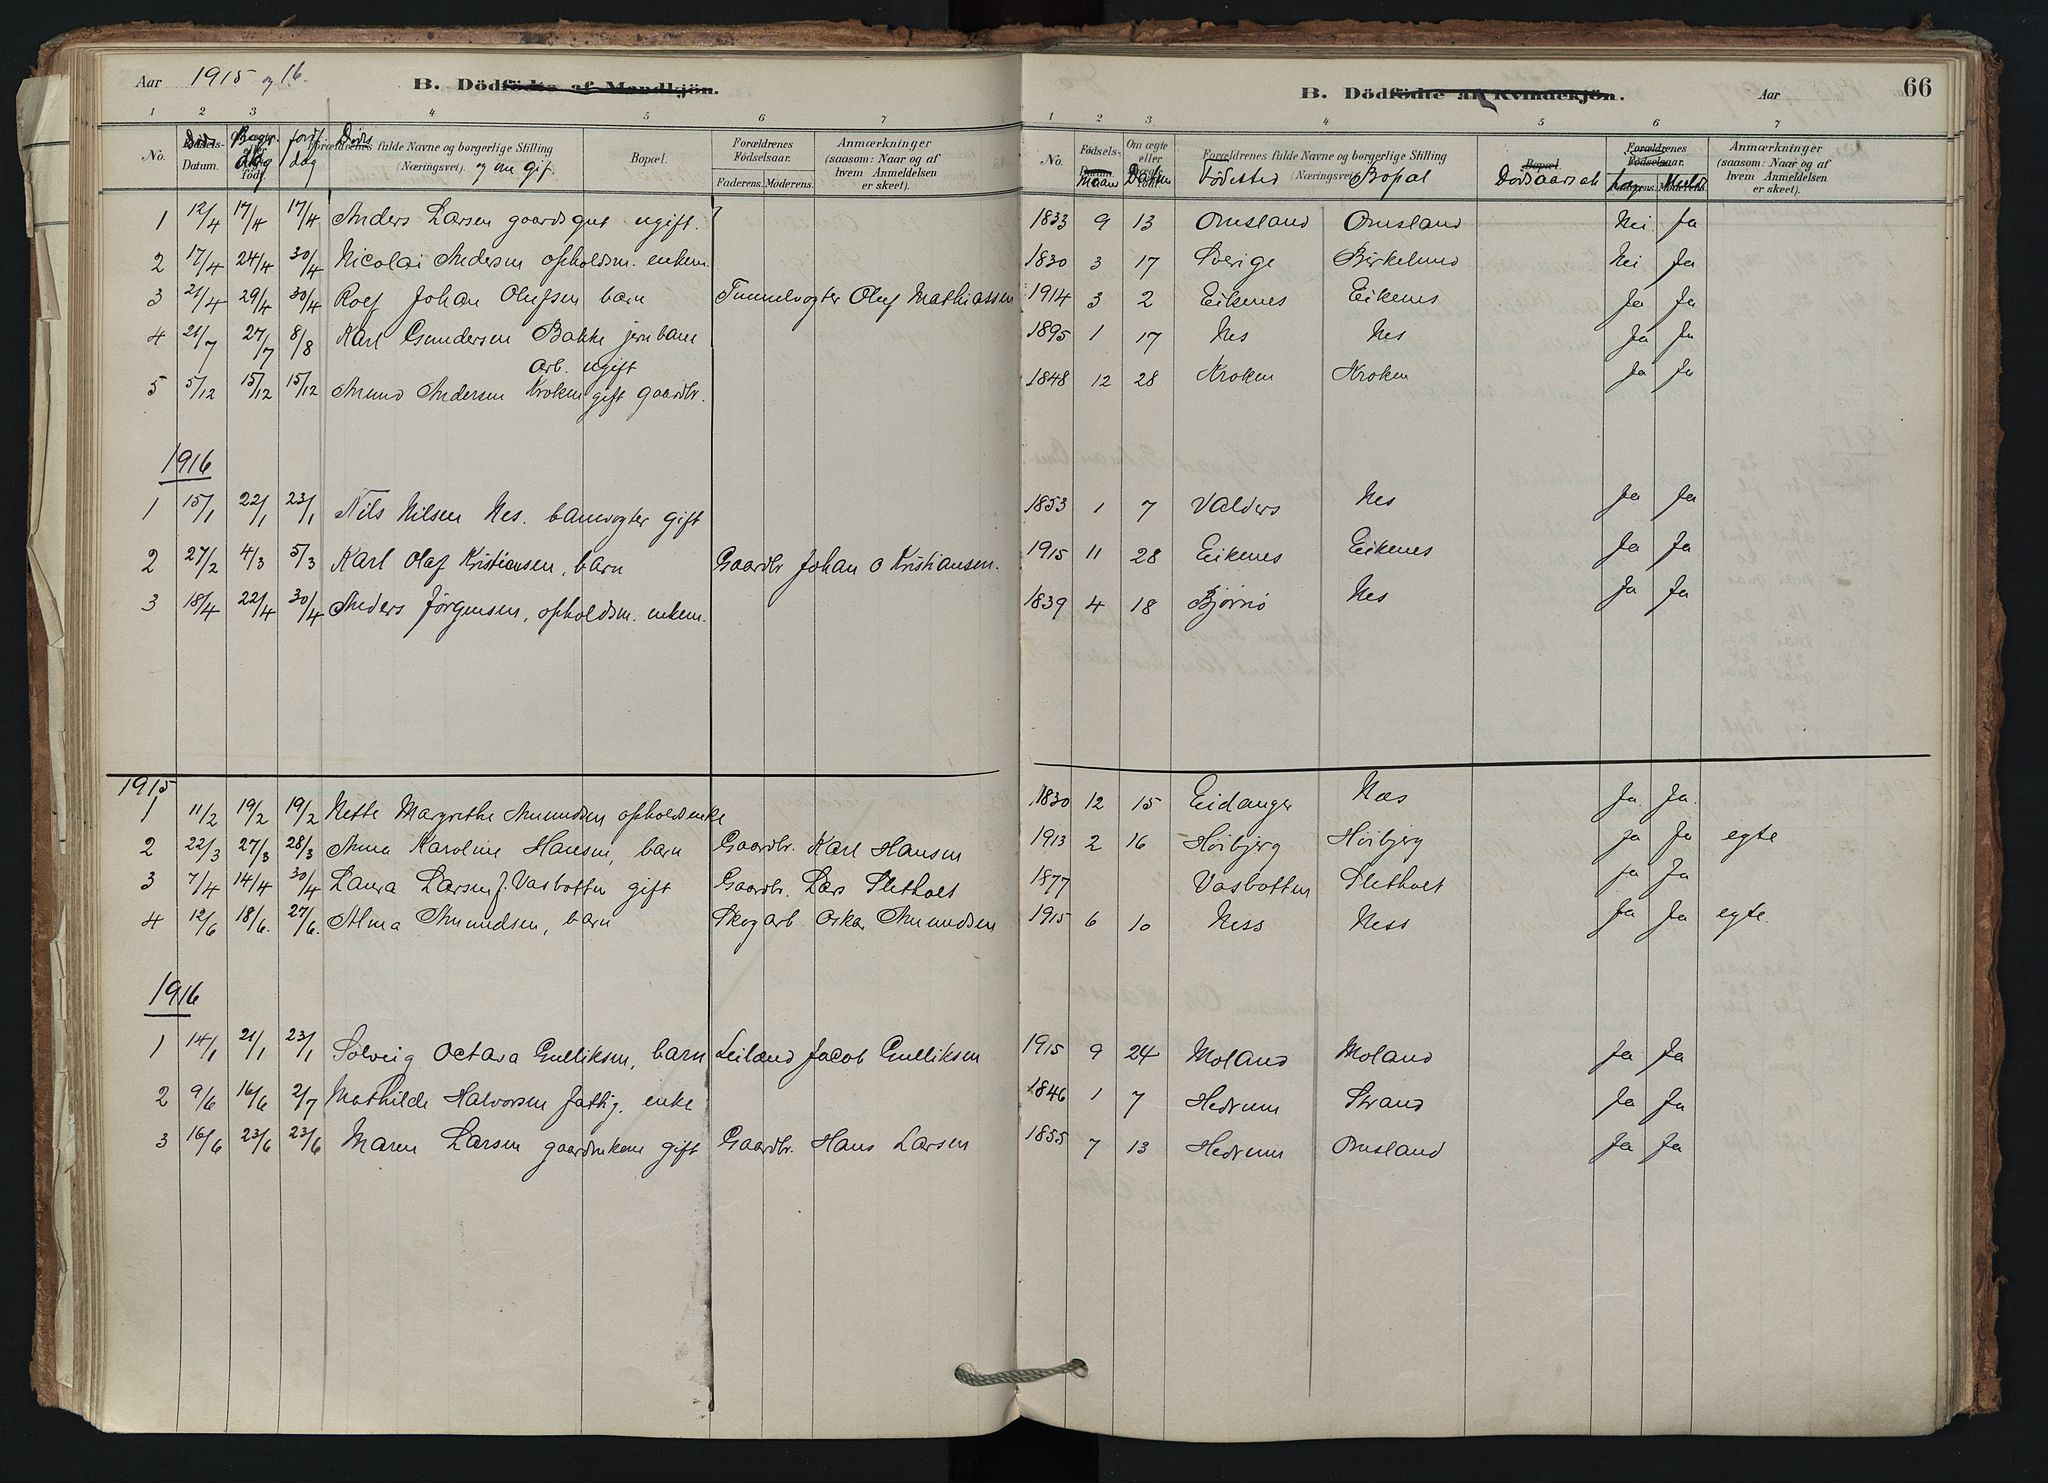 Aar 1915 og 16.
B. Dödfödte af Mandkjön.
1 2 3 4 5 6 7
No. Fødsels-Datum. Død Begr. dag Jordf. dag Døds
Forældrenes fulde Navne og borgerlige Stilling (Næringsvei). og om gift
Bopæl.
Forældrenes Fødselsaar. Faderens. Moderens.
Anmærkninger (saasom: Naar og af hvem Anmeldelsen er skeet).
B. Dödfödte af Kvindekjön.
Aar
66
1 2 3 4 5 6 7
No. Fødsels-Datum. Maan Om ægte eller født. Daten
Forældrenes fulde Navne og borgerlige Stilling (Næringsvei). Fødested Bopæl
Bopæl. Dødsaarsak
Forældrenes Fødselsaar. Faderens. Moderens.
Anmærkninger (saasom: Naar og af hvem Anmeldelsen er skeet).
1 12/4 17/4 17/4 Anders Larsen gaardsgut ugift. 1833 9 13 Omsland Omsland Nei Ja
2 17/4 24/4 30/4 Nicolai Andersen opholdsm. enkem. 1830 3 17 Sverige Birkelund Nei Ja
3 21/4 29/4 30/4 Rolf Johan Olufsen barn Tunnelvogter Oluf Mathiassen 1914 3 2 Eikenes Eikenes Ja Ja
4 21/7 27/7 8/8 Karl Gundersen Bakke jernbane 1895 1 17 Nes Nes Ja Ja
arb. ugift
5 5/12 15/12 15/12 Amund Andersen Kroken gift gaardbr. 1848 12 28 Kroken Kroken Ja Ja
1916
1 15/1 22/1 23/1 Nils Nilsen Nes. banevogter gift 1853 1 7 Valders Nes Ja Ja
2 27/2 4/3 5/3 Karl Olaf Kristiansen, barn Gaardbr Johan O Kristiansen. 1915 11 28 Eikenes Eikenes Ja Ja
3 18/4 22/4 30/4 Anders Jørgensen, opholdsm. enkem. 1839 4 18 Bjørnø Nes Ja Ja
1915
1 11/2 19/2 19/2 Nette Margrethe Amundsen opholdsenke 1830 12 15 Eidanger Næs Ja. Ja.
2 22/3 27/3 28/3 Anna Karoline Hansen, barn Gaardbr. Karl Hansen 1913 2 16 Høibjerg Høibjerg Ja Ja egte
3 7/4 14/4 30/4 Laura Larsen f. Vasbotten gift Gaardbr. Lars Sletholt 1877 Vasbotten Sletholt Ja Ja
4 12/6 18/6. 27/6. Alma Amundsen, barn Skogarb Oskar Amundsen 1915 6 10 Ness Ness Ja Ja egte.
1916
1 14/1 21/1 23/1 Solveig Octava Gulliksen, barn Leilænd Jacob Gulliksen 1915 9 24 Moland Moland Ja Ja
2 9/6 16/6 2/7 Mathilde Halvorsen fattig. enke 1846 1 7 Hedrum Strand Ja Ja
3 16/6 23/6 23/6 Maren Larsen gaardmkone gift Gaardbr. Hans Larsen 1855 7 13 Hedrum Omsland Ja Ja